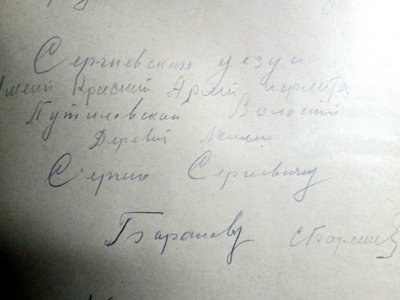 Сергиевского уезда
Имени Красной Армии
Путиловская Волость
Деревни
Сергею Сергеевичу
Баранову